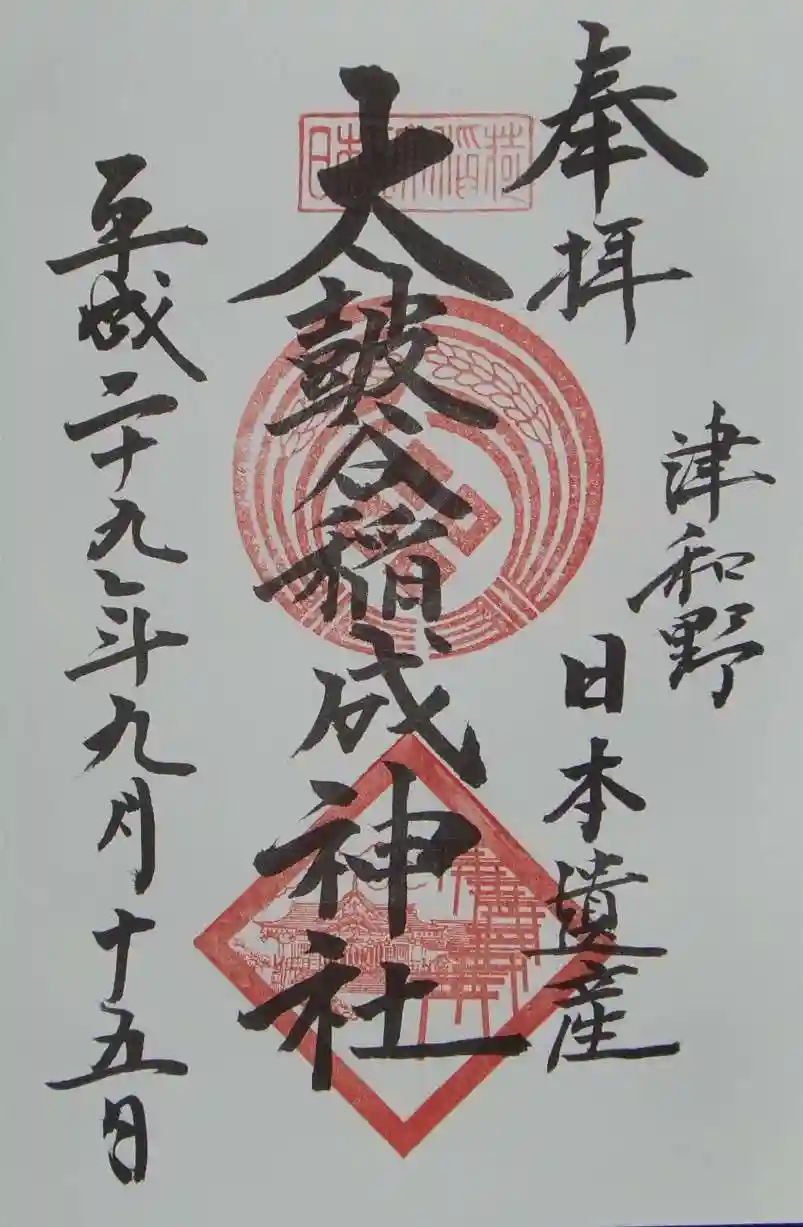 奉拝
津和野
日本遺産
太皷谷稲成神社
平成二十九年九月十五日